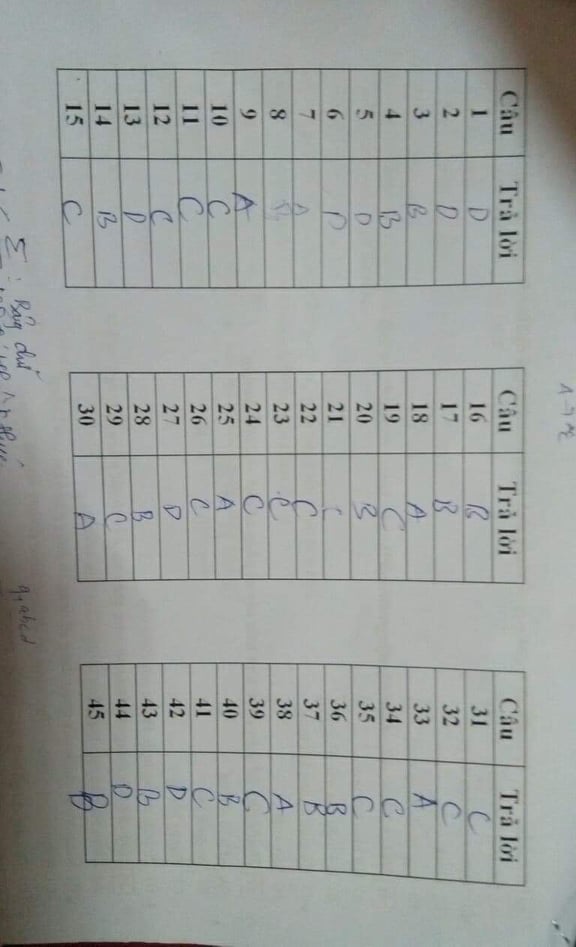 A → C
Câu Trả lời
1 D
2 D
3 B
4 B
5 D
6
7 A
8
9 A
10 C
11 C
12 C
13 D
14 B
15 C
Câu Trả lời
16 B
17 B
18 A
19 C
20 B
21
22 C
23 C
24 C
25 A
26 C
27 D
28 B
29 C
30 A
Câu Trả lời
31 C
32 C
33 A
34 C
35 C
36 B
37 B
38 A
39 C
40 B
41 C
42 D
43 B
44 D
45
Σ : Bảng chữ
q, abcd